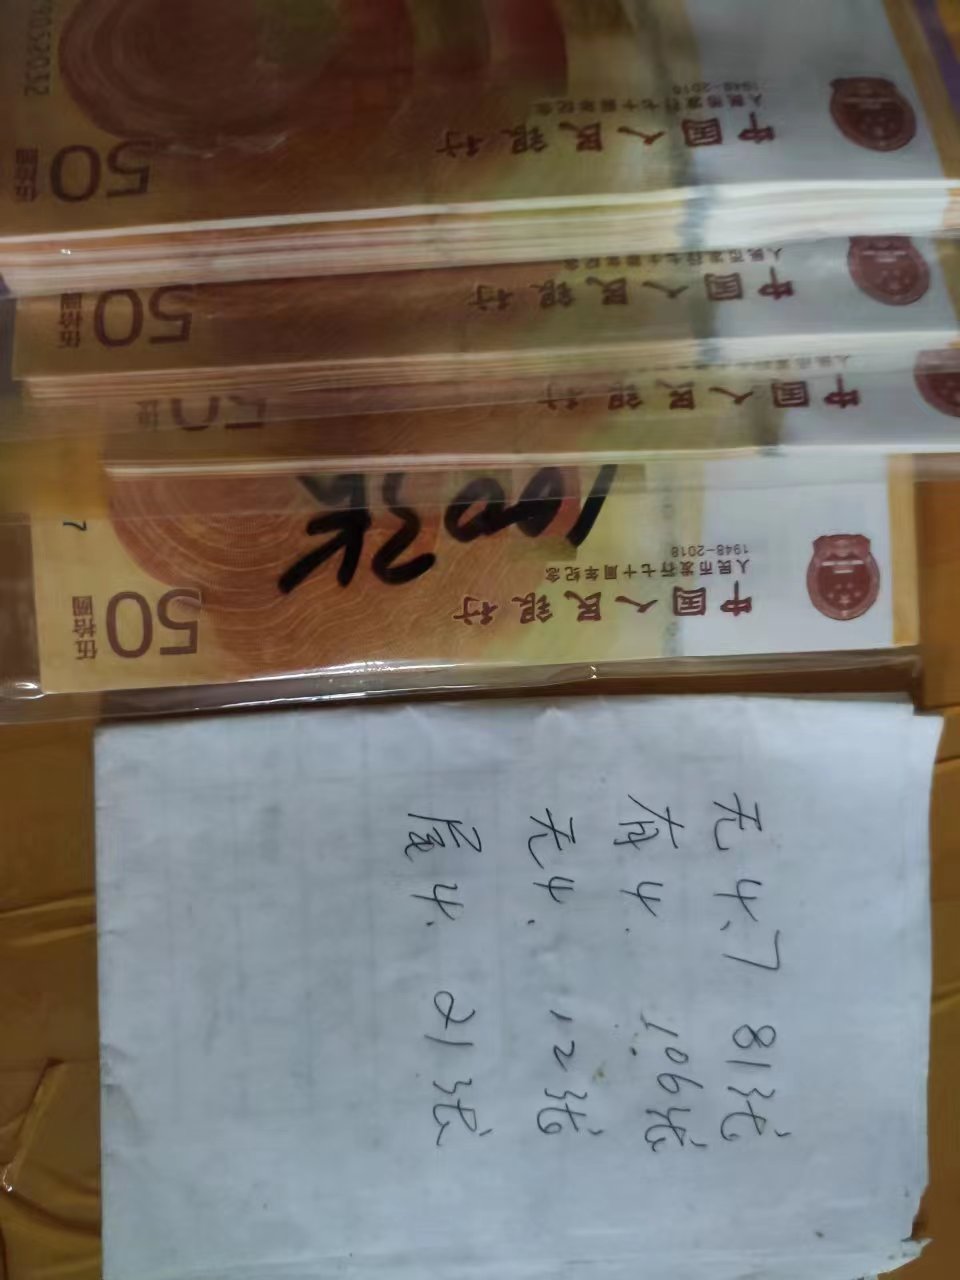 中国人民银行
人民币发行七十周年纪念
1948-2018
50
中国人民银行
人民币发行七十周年纪念
50
伍拾圆
中国人民银行
50
100张
中国人民银行
人民币发行七十周年纪念
1948-2018
50
伍拾圆
7
无4、7 81张
有4. 106张
无4. 12张
尾4. 21张